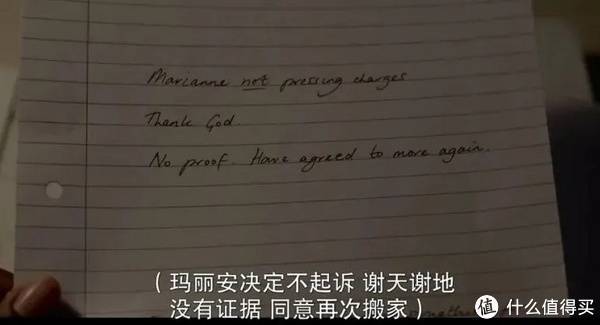 Marianne not pressing charges
Thank God.
No proof. Have agreed to move again.
（玛丽安决定不起诉 谢天谢地
没有证据 同意再次搬家）
值 什么值得买